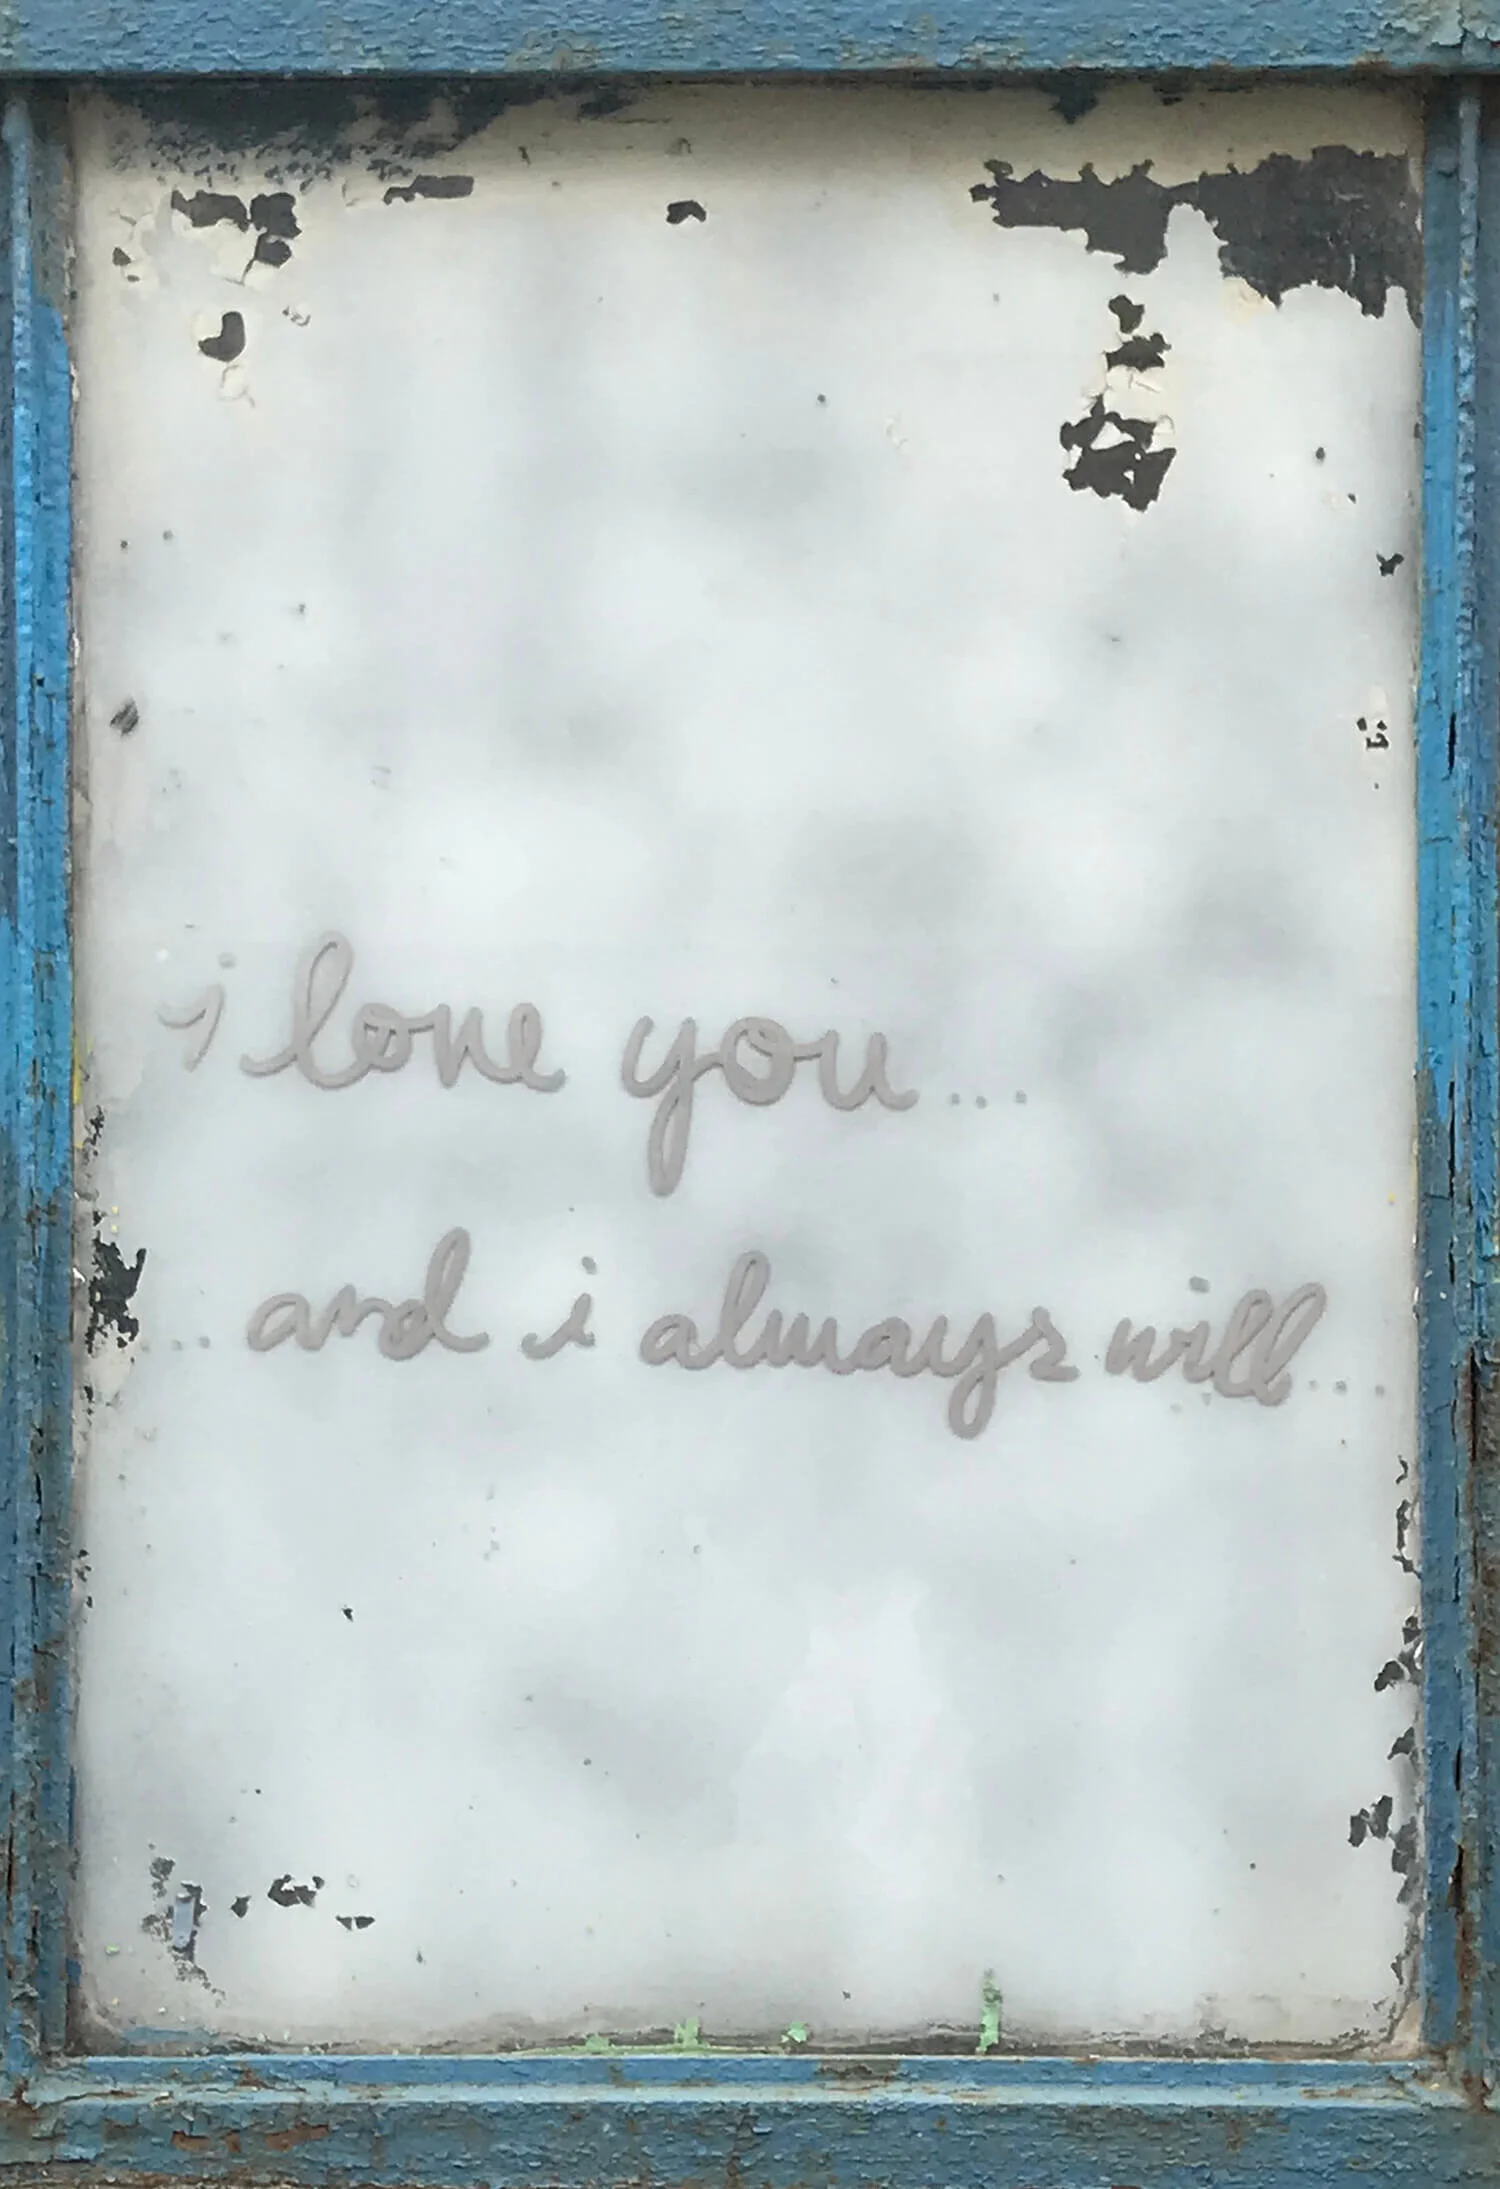 i love you...
... and i always will...